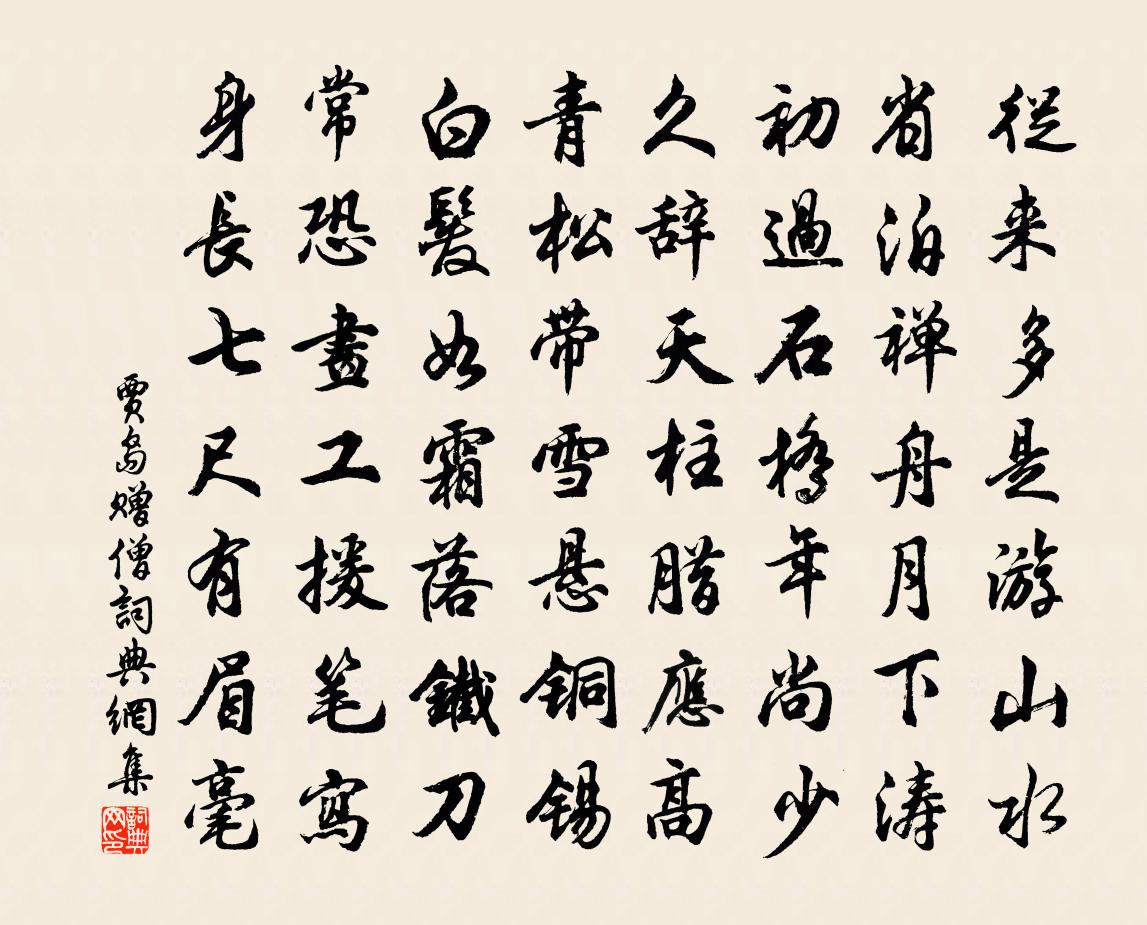 從来多是游山水
省泊禅舟月下涛
初過石橋年尚少
久辞天柱腊應高
青松带雪悬铜锡
白髮如霜落鐵刀
常恐畫工援笔寫
身長七尺有眉毫
賈島赠僧詞典網集
詞典网印